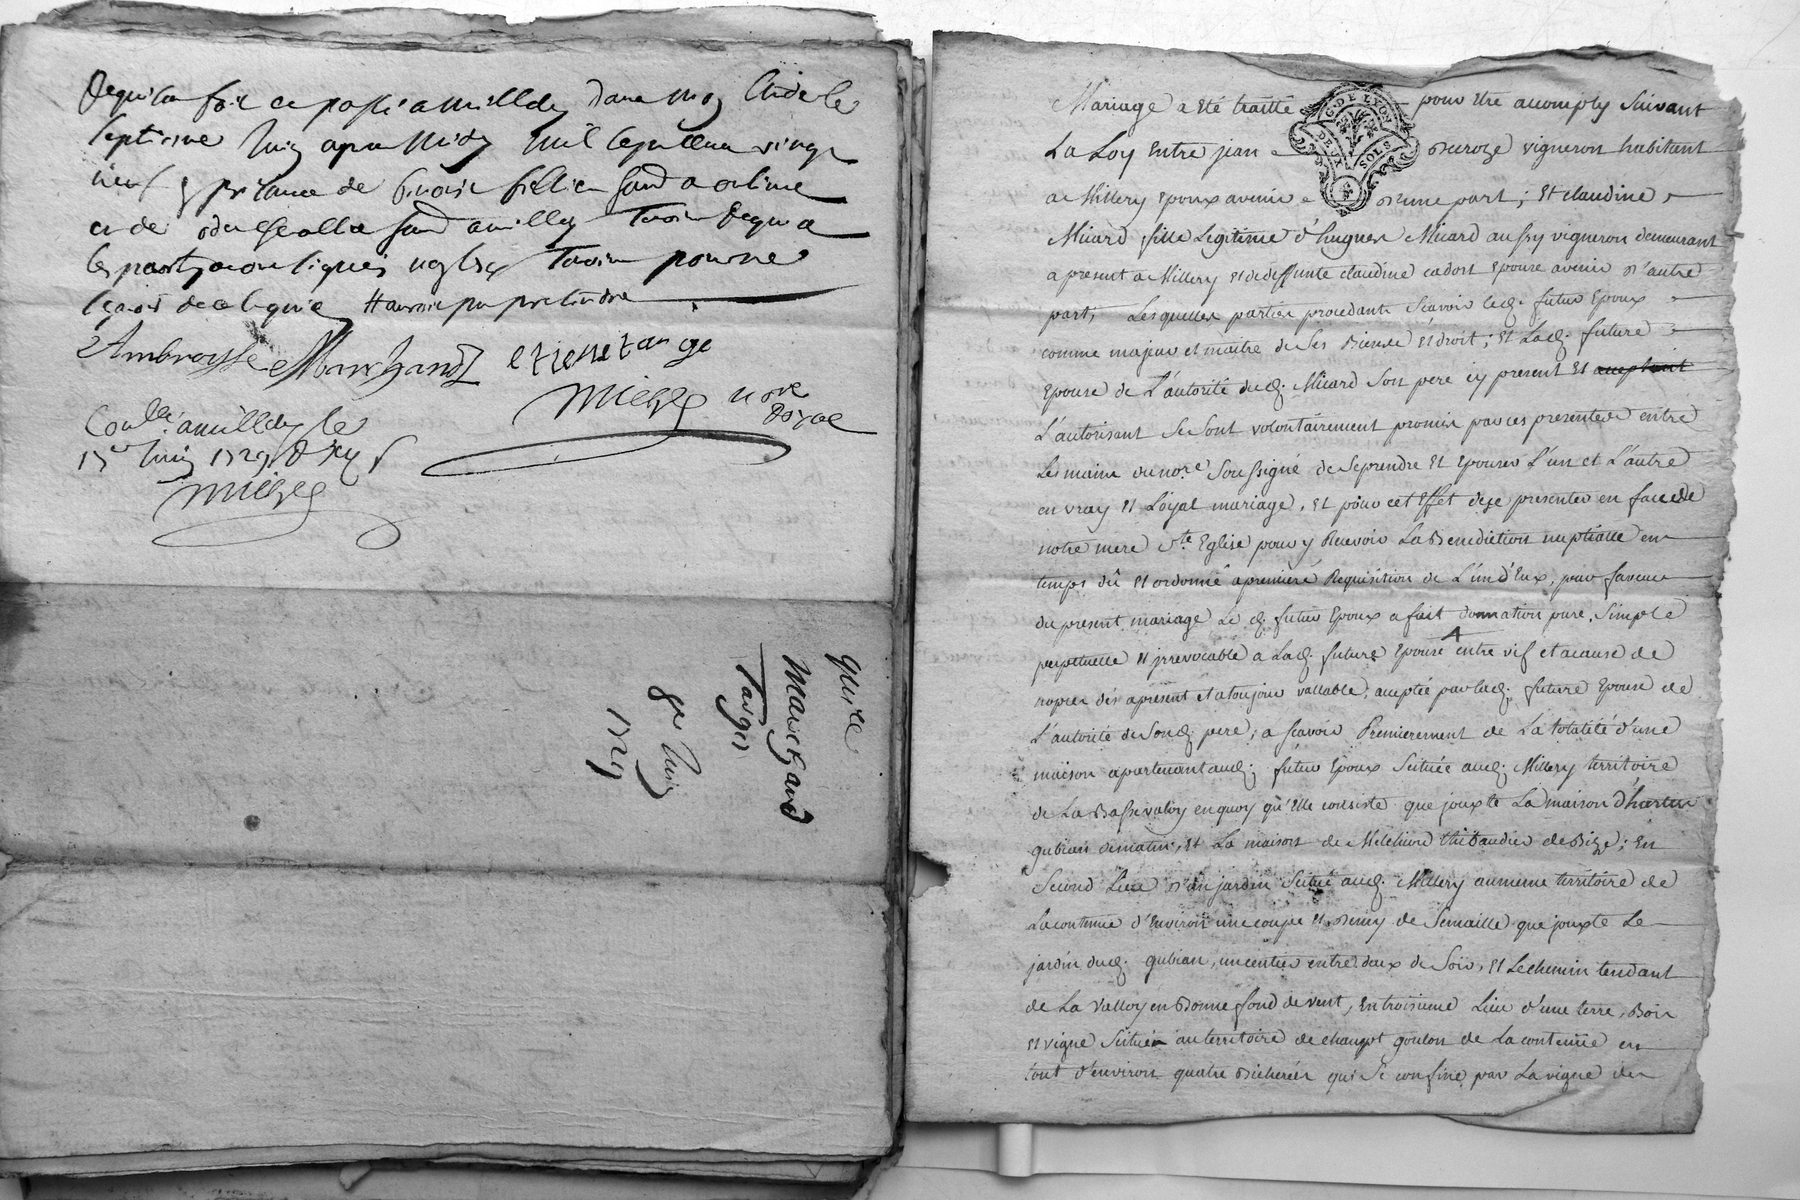 fait et passé a Millery dans mon Etude le
septieme Juin apres Midy Mil sept cent vingt
neuf presence de
et de a Millery
les parties ont signés
Ambroysse Marchand etienetange
Michel no.re Royal
Con.lé a Millery le
15.e Juin 1729
Michel
quit.ce
Marchand
Tanges
8.e Juin
1729
Mariage a eté traitté pour etre accomply Suivant
G. DE LYON
DEUX SOLS
La Loy Entre jean Deroze vigneron habitant
a Millery Epoux avenir d'une part; Et claudine
Micard fille Legitime d'hugues Micard aussy vigneron demeurant
a present a Millery et de deffunte claudine cadost Epouse avenir d'autre
part, Lesquelles parties procedant Scavoir led. futur Epoux
comme majeur et maitre de Ses Biens et droit; Et Lad. future
Epouse de L'autorité dud. Micard Son pere icy present Et acceptant
L'autorisant Se Sont volontairement promis par ces presentes entre
Les mains du no.re Soussigné de Se prendre Et Epouser L'un et L'autre
en vray Et Loyal mariage, Et pour cet Effet de se presenter en face de
notre mere S.te Eglise pour y Recevoir La Benediction nuptialle en
temps dû Et ordonné a premiere Requisition de L'un d'Eux, pour faveur
du present mariage Le d. futur Epoux a fait donnation pure, Simple
perpetuelle Et jrrevocable a Lad. future Epouse entre vif et a cause de
nopces dés apresent et a toujour vallable, acceptée par lad. future Epouse de
L'autorité de Sond. pere, a scavoir Premierement de La totalité d'une
maison apartenant aud. futur Epoux Scituée aud. Millery territoire
de La Basse valoy en quoy qu'Elle consiste que jouxte La maison
gubian de matin, Et La maison de Melchiord thibaudier de Bize; En
Second Lieu d'un jardin Scitué aud. Millery au meme territoire de
La contenue d'Environ une coupe Et Demy de Semaille que jouxte Le
jardin dud. gubian, un centier entre deux de Soir, Et Le chemin tendant
de La Valloy en Bonnefond de vent, En troisieme Lieu d'une terre, Bois
Et vigne Scitués au territoire de goulon de La contenüe en
tout d'environ quatre Bicherées qui Se confine par La vigne de